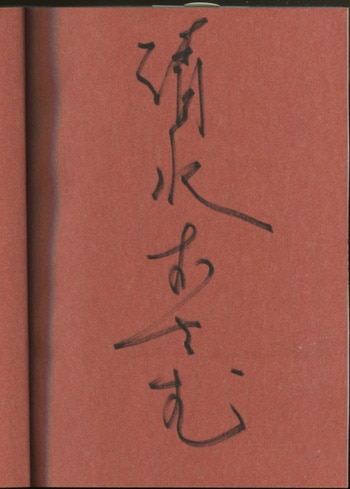 清水おさむ